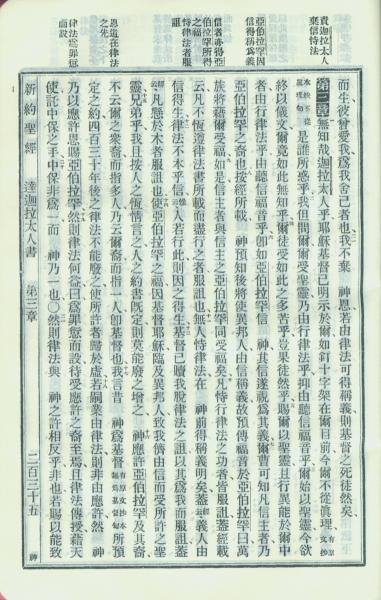 責迦拉太人
棄信恃法
亞伯拉罕因
信得稱爲義
信者亦得亞
伯拉罕所得
恃律法者服
詛
恩道在律法
之先
律法爲罪惡
而設
而生彼曾愛我爲我舍己者也我不棄 神恩若由律法可得稱義則基督之死徒然矣
第三章 無知哉迦拉太人乎耶穌基督已明示於爾如釘十字架在爾目前今爾不從眞理
是誰所惑乎我但問爾受聖靈乃由行律法乎抑由聽信福音乎爾始以聖靈今欲
終以儀文爾竟如此無知乎爾徒受如此之多苦乎豈果徒然乎賜爾以聖靈且行異能於爾中
者由行律法乎由聽信福音乎卽如亞伯拉罕信 神其信遂視爲其義爾曹可知凡信主者乃
亞伯拉罕之裔也按經所載 神預知後將使異邦人由信稱義故預傳福音於亞伯拉罕曰萬
族將藉爾受福如是信主者與信主之亞伯拉罕同受福矣凡恃行律法之功者皆服詛蓋經載
云凡不恆遵律法書所載而盡行之者服詛也無人恃律法在 神前得稱義明矣蓋經云義人由
信得生律法不本乎信惟云人若行此則因之得生基督已贖我脫律法之詛以其爲我而服詛蓋經載
云凡懸於木者服詛也使亞伯拉罕之福因基督耶穌臨及異邦人致我儕由信而受所許之聖
靈兄弟乎我且按人之恆情言之人之約書旣定則莫能廢之增之 神應許亞伯拉罕及其裔
不云爾之衆裔而指多人乃云爾裔而指一人卽基督也我言昔 神爲基督所預
定之約四百三十年後之律法不能廢之使所許者歸於虛若嗣業由律法則非由應許然 神
乃以應許恩賜亞伯拉罕然則律法何益曰爲罪愆而設待受應許之裔至焉且律法傳授藉天
使託中保之手中保非爲一而 神乃一也〇然則律法與 神之許相反乎非也若賜以能致
新約聖經 達迦拉太人書 第三章 二百三十五
神